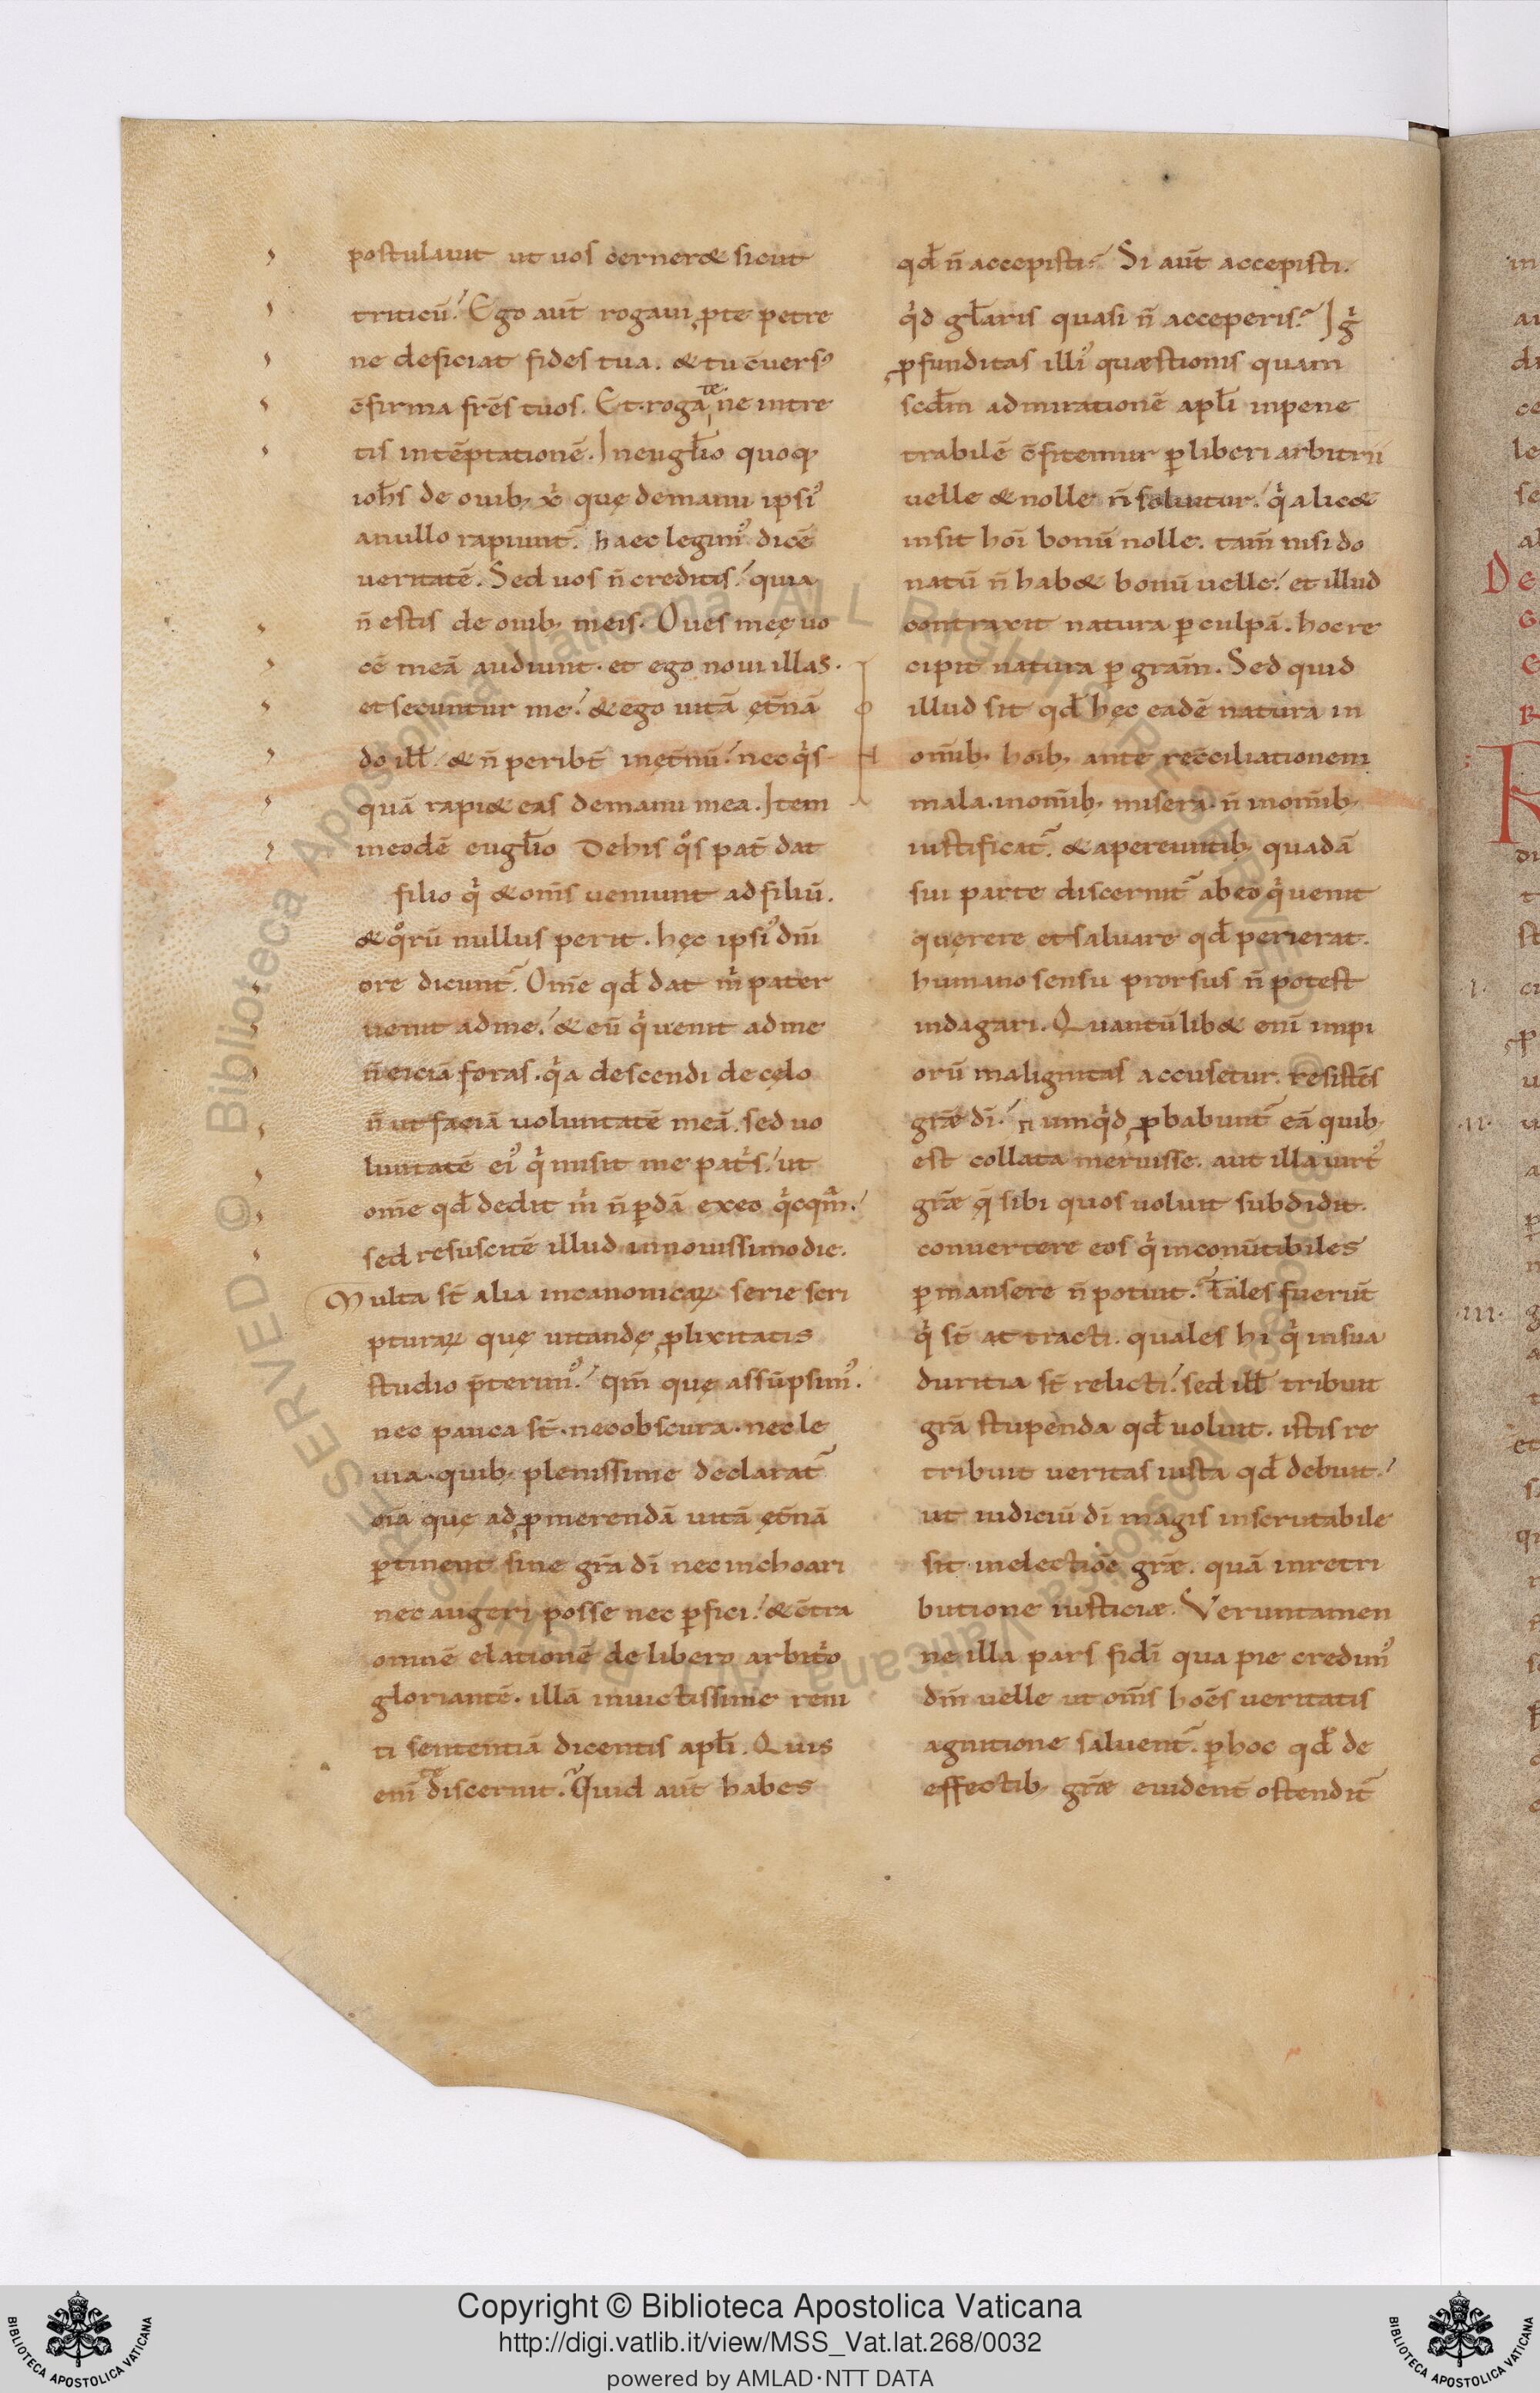 postulauit ut uos cerneret& sicut
triticū. Ego aut̄ rogaui ꝓte petre
ne deficiat fides tua. & tu c̄uersꝰ
c̄firma fr̄es tuos. Et rogate ne intre
tis intēptationē. In eugl̄io quoq;
ioh̄s de ouib; xp̄i quę demanu ipsiꝰ
anullo rapiunt̄. haec legimꝰ dicē
ueritatē. Sed uos n̄ creditis. quia
n̄ estis de ouib; meis. Oues meę uo
cē meā audiunt. et ego noui illas.
et secuntur me. & ego uitā ęt̄nā
do ill̄. & n̄ peribt̄ inęt̄nū. nec qͥs
quā rapi& eas demanu mea. Item
ineodē eugl̄io De his qͦs pat̄ dat
filio qͥ & om̄s ueniunt ad filiū.
& qͦrū nullus perit. hęc ipsiꝰ dn̄i
ore dicunt̄. Om̄e qđ dat mͥ pater
uenit adme. & eū qͥ uenit adme
n̄ eiciā foras. qͥa descendi decęlo
n̄ ut faciā uoluntatē meā. sed uo
luntatē eiꝰ qͥ misit me patͥs. ut
om̄e qđ dedit mͥ n̄ ꝑdā exeo qͥcqm̄.
sed resuscitē illud innouissimo die.
Multa st̄ alia incanonicaꝝ serie scri
pturaꝝ quę uitandę ꝓlixitatis
studio p̄terimꝰ. qm̄ quę assūpsimꝰ.
nec pauca st̄. nec obscura. nec le
uia. quib; plenissime declarat̄
oīa quę ad ꝓmerendā uitā ęt̄nā
ꝑtinent sine gr̄a dī nec inchoari
nec augeri posse nec ꝑfici. & c̄tra
omnē elationē de libero arbitͥo
gloriantē. illā inuictissime reni
ti sententiā dicentis apl̄i. Quis
enī te discernit. Quid aut̄ habes
qđ n̄ accepisti? Si aut̄ accepisti.
qͥd gl̄aris quasi n̄ acceperis? Igͥ
ꝓfunditas illiꝰ quæstionis quam
scđm admirationē apl̄i inpene
trabilē c̄fitemur ꝑ liberi arbitrii
uelle & nolle n̄ soluitur. qͥa lic&
insit hoī bonū nolle. tam̄ nisi do
natū n̄ hab& bonū uelle. et illud
contraxit natura ꝑ culpā. hoc re
cipit natura ꝑ gram̄. Sed quid
illud sit qđ hęc eadē natura in
om̄ib; hoīb; ante rec̄ciliationem
mala. inom̄ib; misera. n̄ inom̄ib;
iustificat̄. & apereuntib; quadā
sui parte discernit̄ abeo qͥ uenit
quęrere et saluare qđ perierat.
humano sensu prorsus n̄ potest
indagari. Quantūlib& enī impi
orū malignitas accusetur. resistēs
gr̄æ dī. numqͥd ꝓbabunt̄ eā quib;
est collata meruisse. aut illa uirtꝰ
gr̄æ q̄ sibi quos uoluit subdidit.
conuertere eos qͥ inconūtibiles
ꝑmansere n̄ potuit. Tales fuerūt
qͥ st̄ attracti. quales hi qͥ insua
duritia st̄ relicti. sed ill̄ tribuit
gr̄a stupenda qđ uoluit. istis re
tribuit ueritas iusta qđ debuit.
ut iudiciū dī magis inscrutabile
sit inelectiōe gr̄æ. quā inretri
butione iusticiæ. Veruntamen
ne illa pars fidī qua pie credimꝰ
dm̄ uelle ut om̄s hoēs ueritatis
agnitione saluent̄. ꝑ hoc qđ de
effectib; gr̄æ euident̄ ostendit̄
Copyright © Biblioteca Apostolica Vaticana
http://digi.vatlib.it/view/MSS_Vat.lat.268/0032
powered by AMLAD·NTT DATA